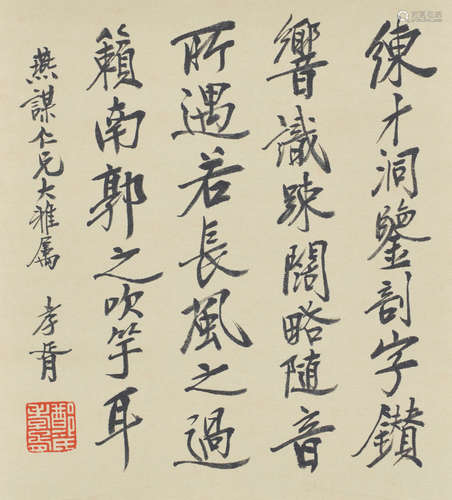 練才洞鑒剖字鑽
響識疎闊略隨音
所遇若長風之過
籟南郭之吹竽耳
燕謀仁兄大雅屬
孝胥